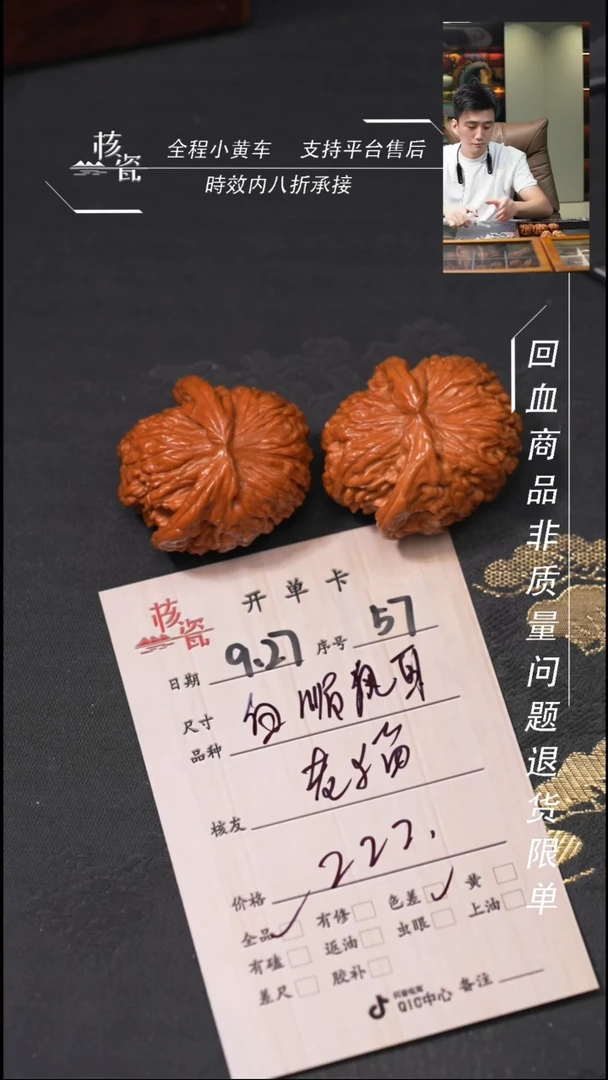 核瓷
全程小黄车 支持平台售后
時效内八折承接
回血商品非质量问题退货限单
核瓷
开单卡
日期 9.27 序号 57
尺寸
品种
核友
价格 222.
全品 有修 色差 黄
有磕 返油 虫眼 上油
差尺 胶补
抖音电商
QIC中心 备注